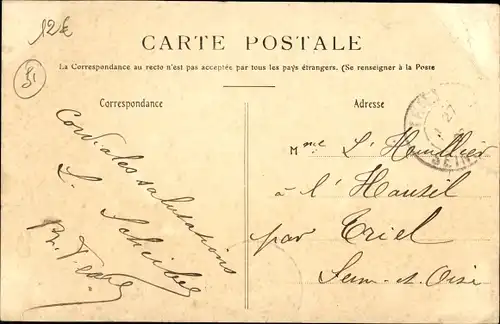 12€
51
CARTE POSTALE
La Correspondance au recto n'est pas acceptée par tous les pays étrangers. (Se renseigner à la Poste
Correspondance
Cordiales salutations
L.
Adresse
Mme L'Heuillier
à l'Hautil
par Triel
Seine-et-Oise
27
SEINE